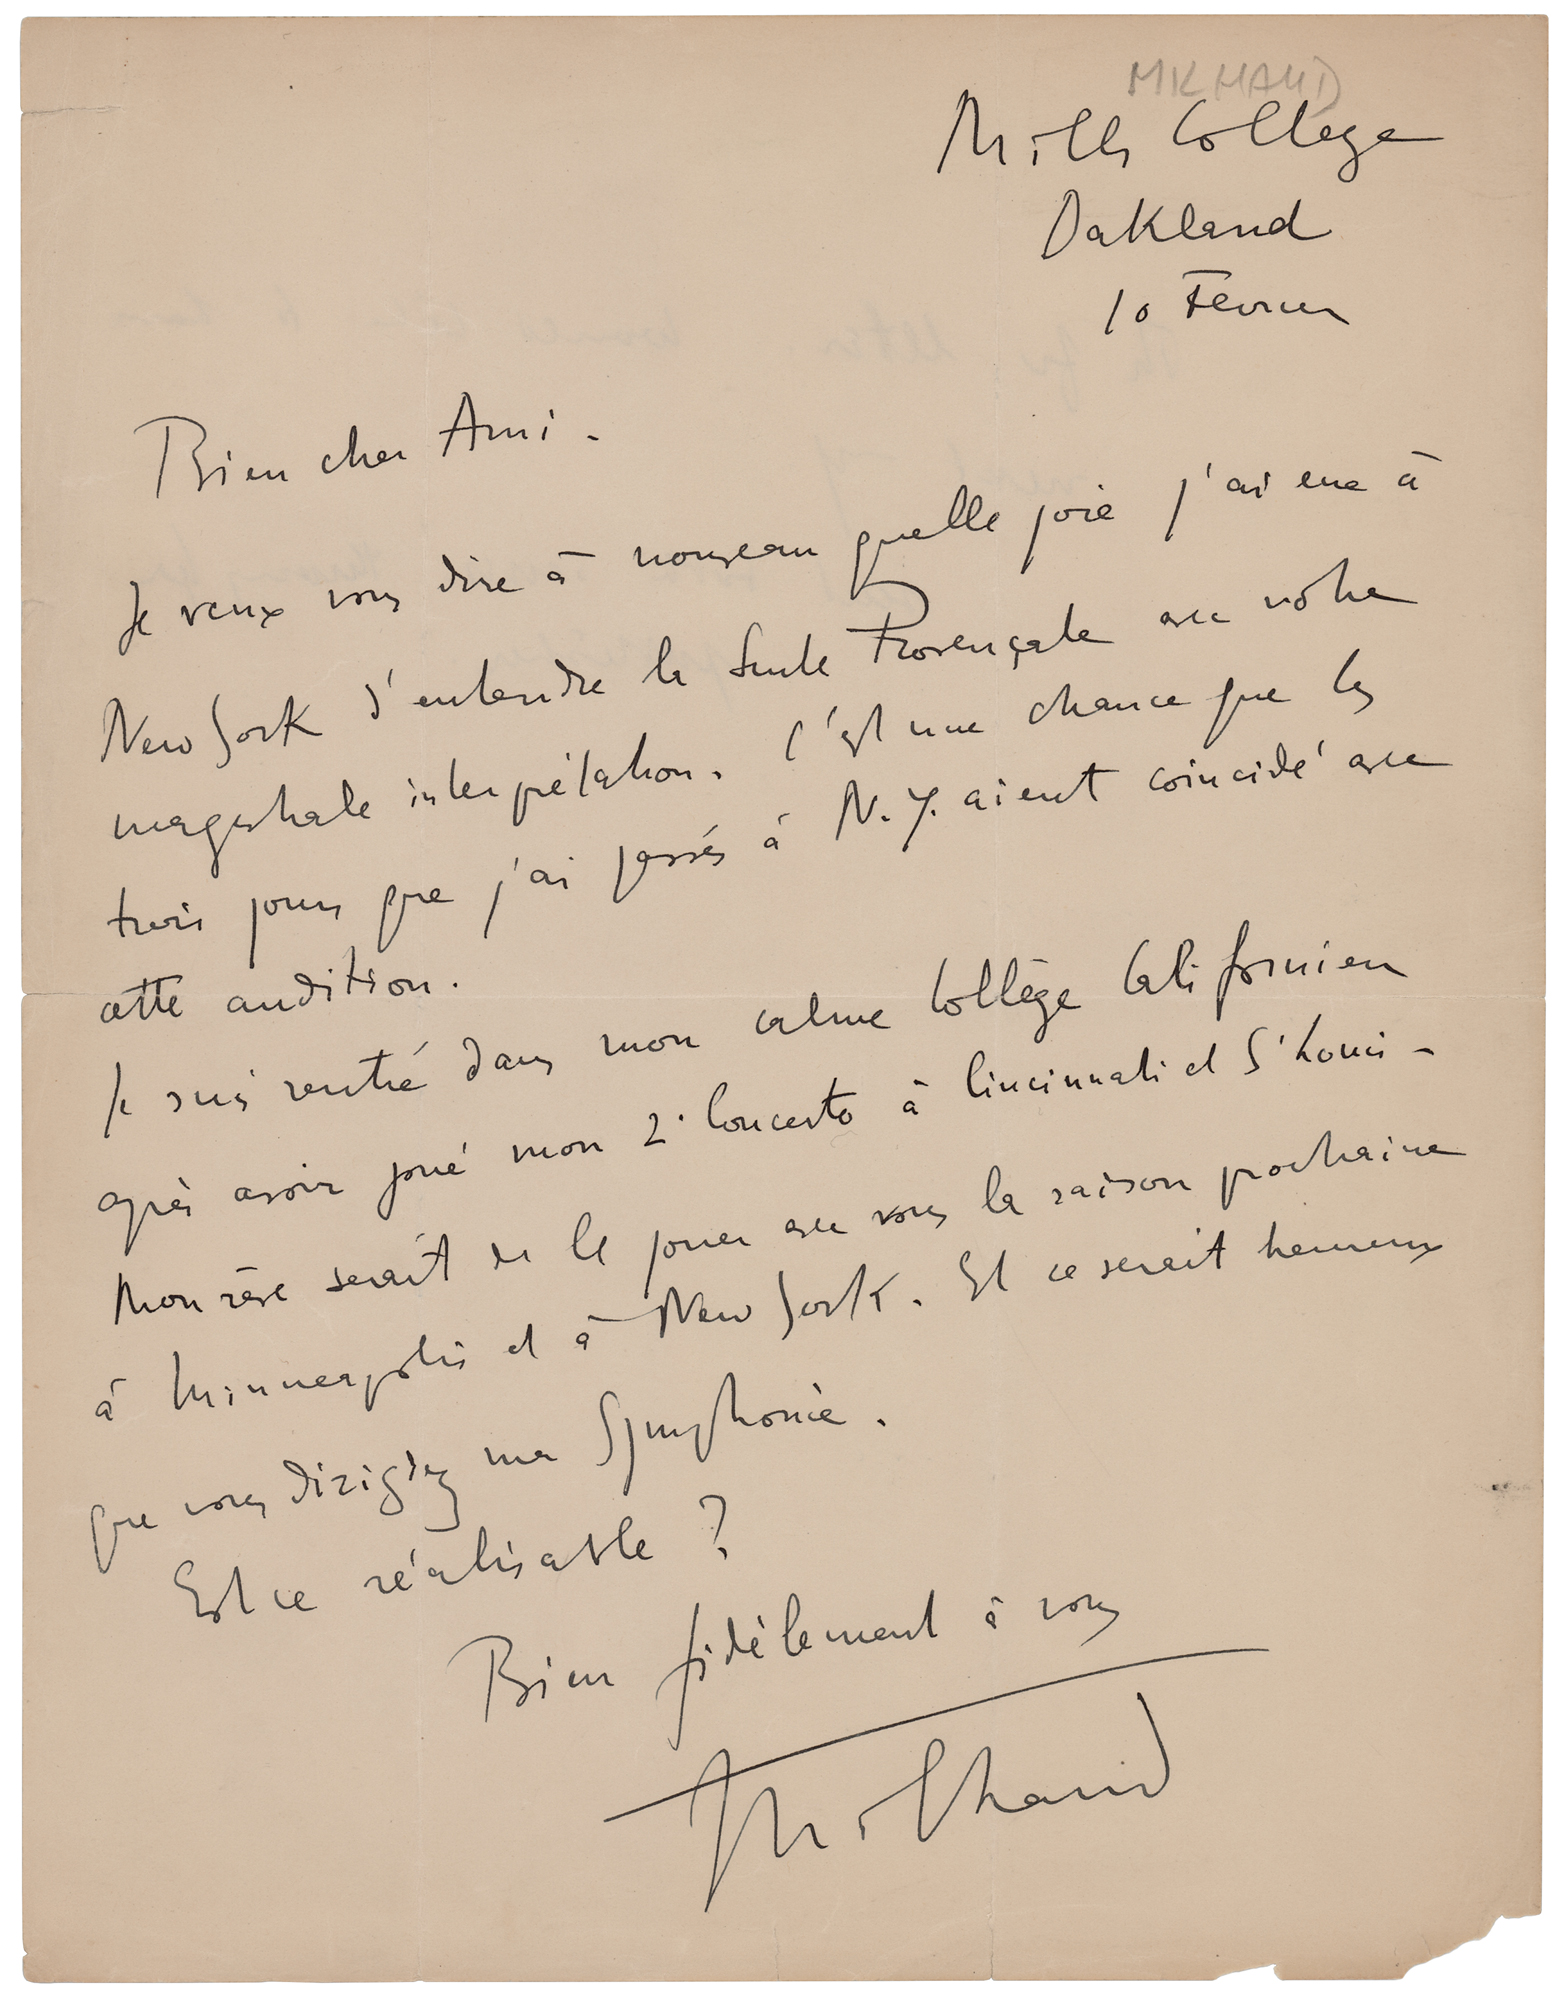 MILHAUD
Mills College
Oakland
10 Février
Bien cher Ami.
Je veux vous dire à nouveau quelle joie j'ai eue à
New York d'entendre la Suite Provençale avec votre
magistrale interprétation. C'est une chance que les
trois jours que j'ai passés à N.Y. aient coïncidé avec
cette audition.
Je suis rentré dans mon calme Collège Californien
après avoir joué mon 2e Concerto à Cincinnati et St Louis –
Mon rêve serait de le jouer avec vous la saison prochaine
à Minneapolis et à New York. Et ce serait heureux
que vous dirigiez ma Symphonie.
Est ce réalisable ?
Bien fidèlement à vous
Milhaud